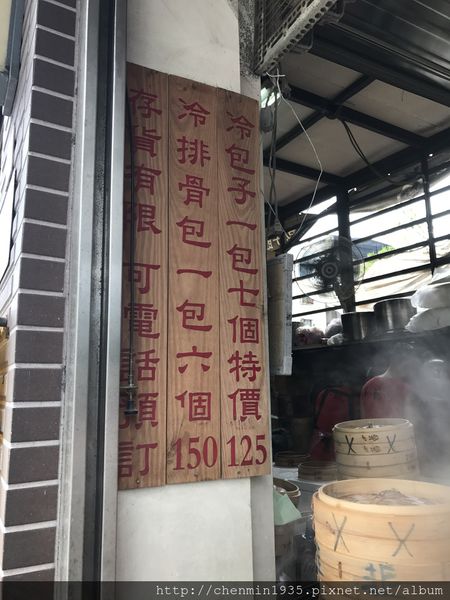 冷包子一包七個特價125
冷排骨包一包六個150
存貨有限 可電話預訂
http://chenmin1935.pixnet.net/album